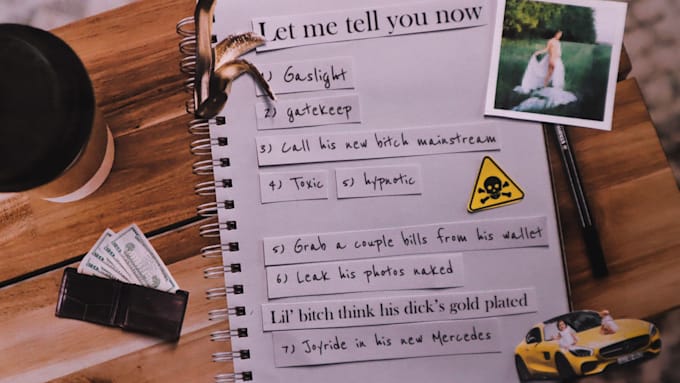 Let me tell you now
1) Gaslight
2) gatekeep
3) Call his new bitch mainstream
4) Toxic 5) hypnotic
5) Grab a couple bills from his wallet
6) Leak his photos naked
Lil' bitch think his dick's gold plated
7) Joyride in his new Mercedes